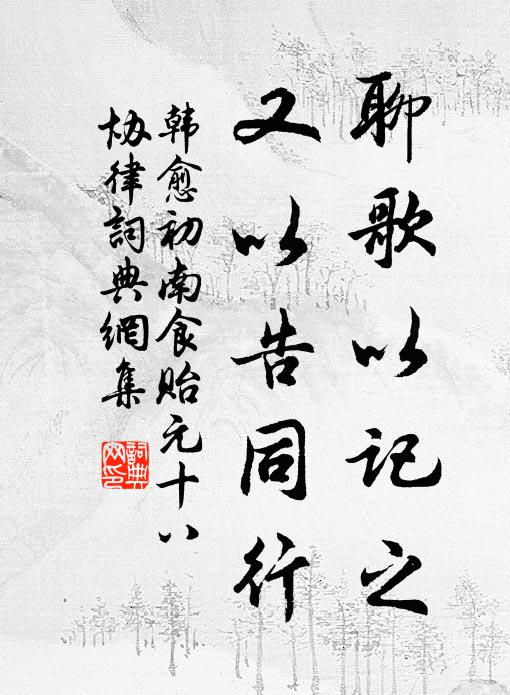 聊歌以记之
又以告同行
韩愈初南食贻元十八
协律词典网集
詞典
网印